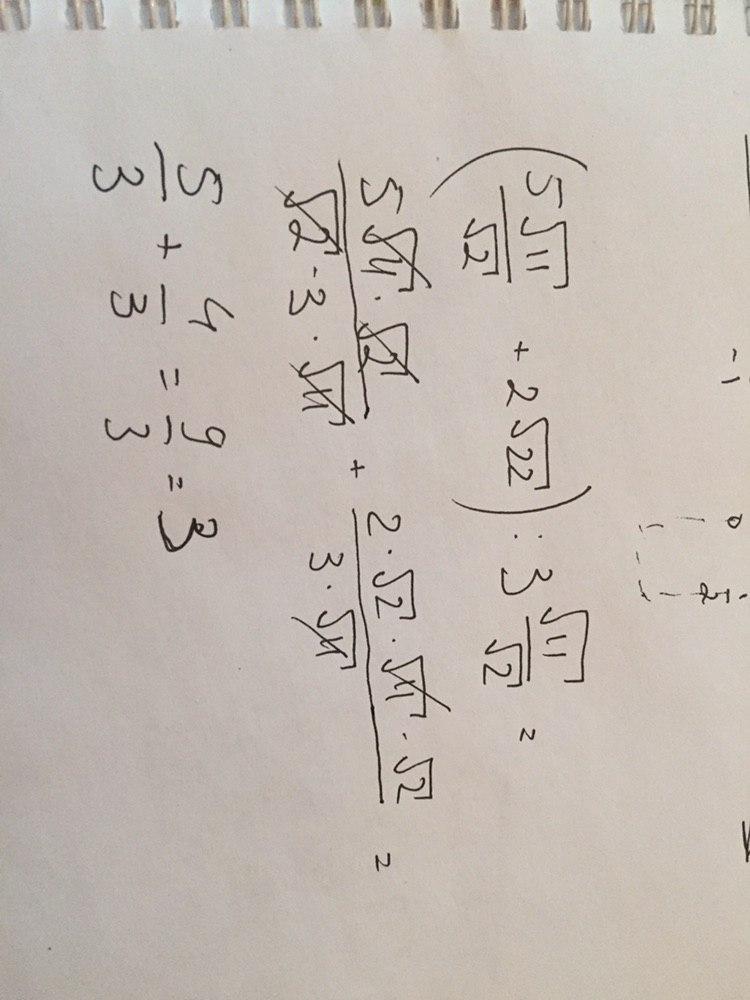 -1 0 1/2
(5√11/√2 + 2√22) : 3 √11/√2 =
5√11 · √2/√2 · 3 · √11 + 2 · √2 · √11 · √2/3 · √11 =
5/3 + 4/3 = 9/3 = 3